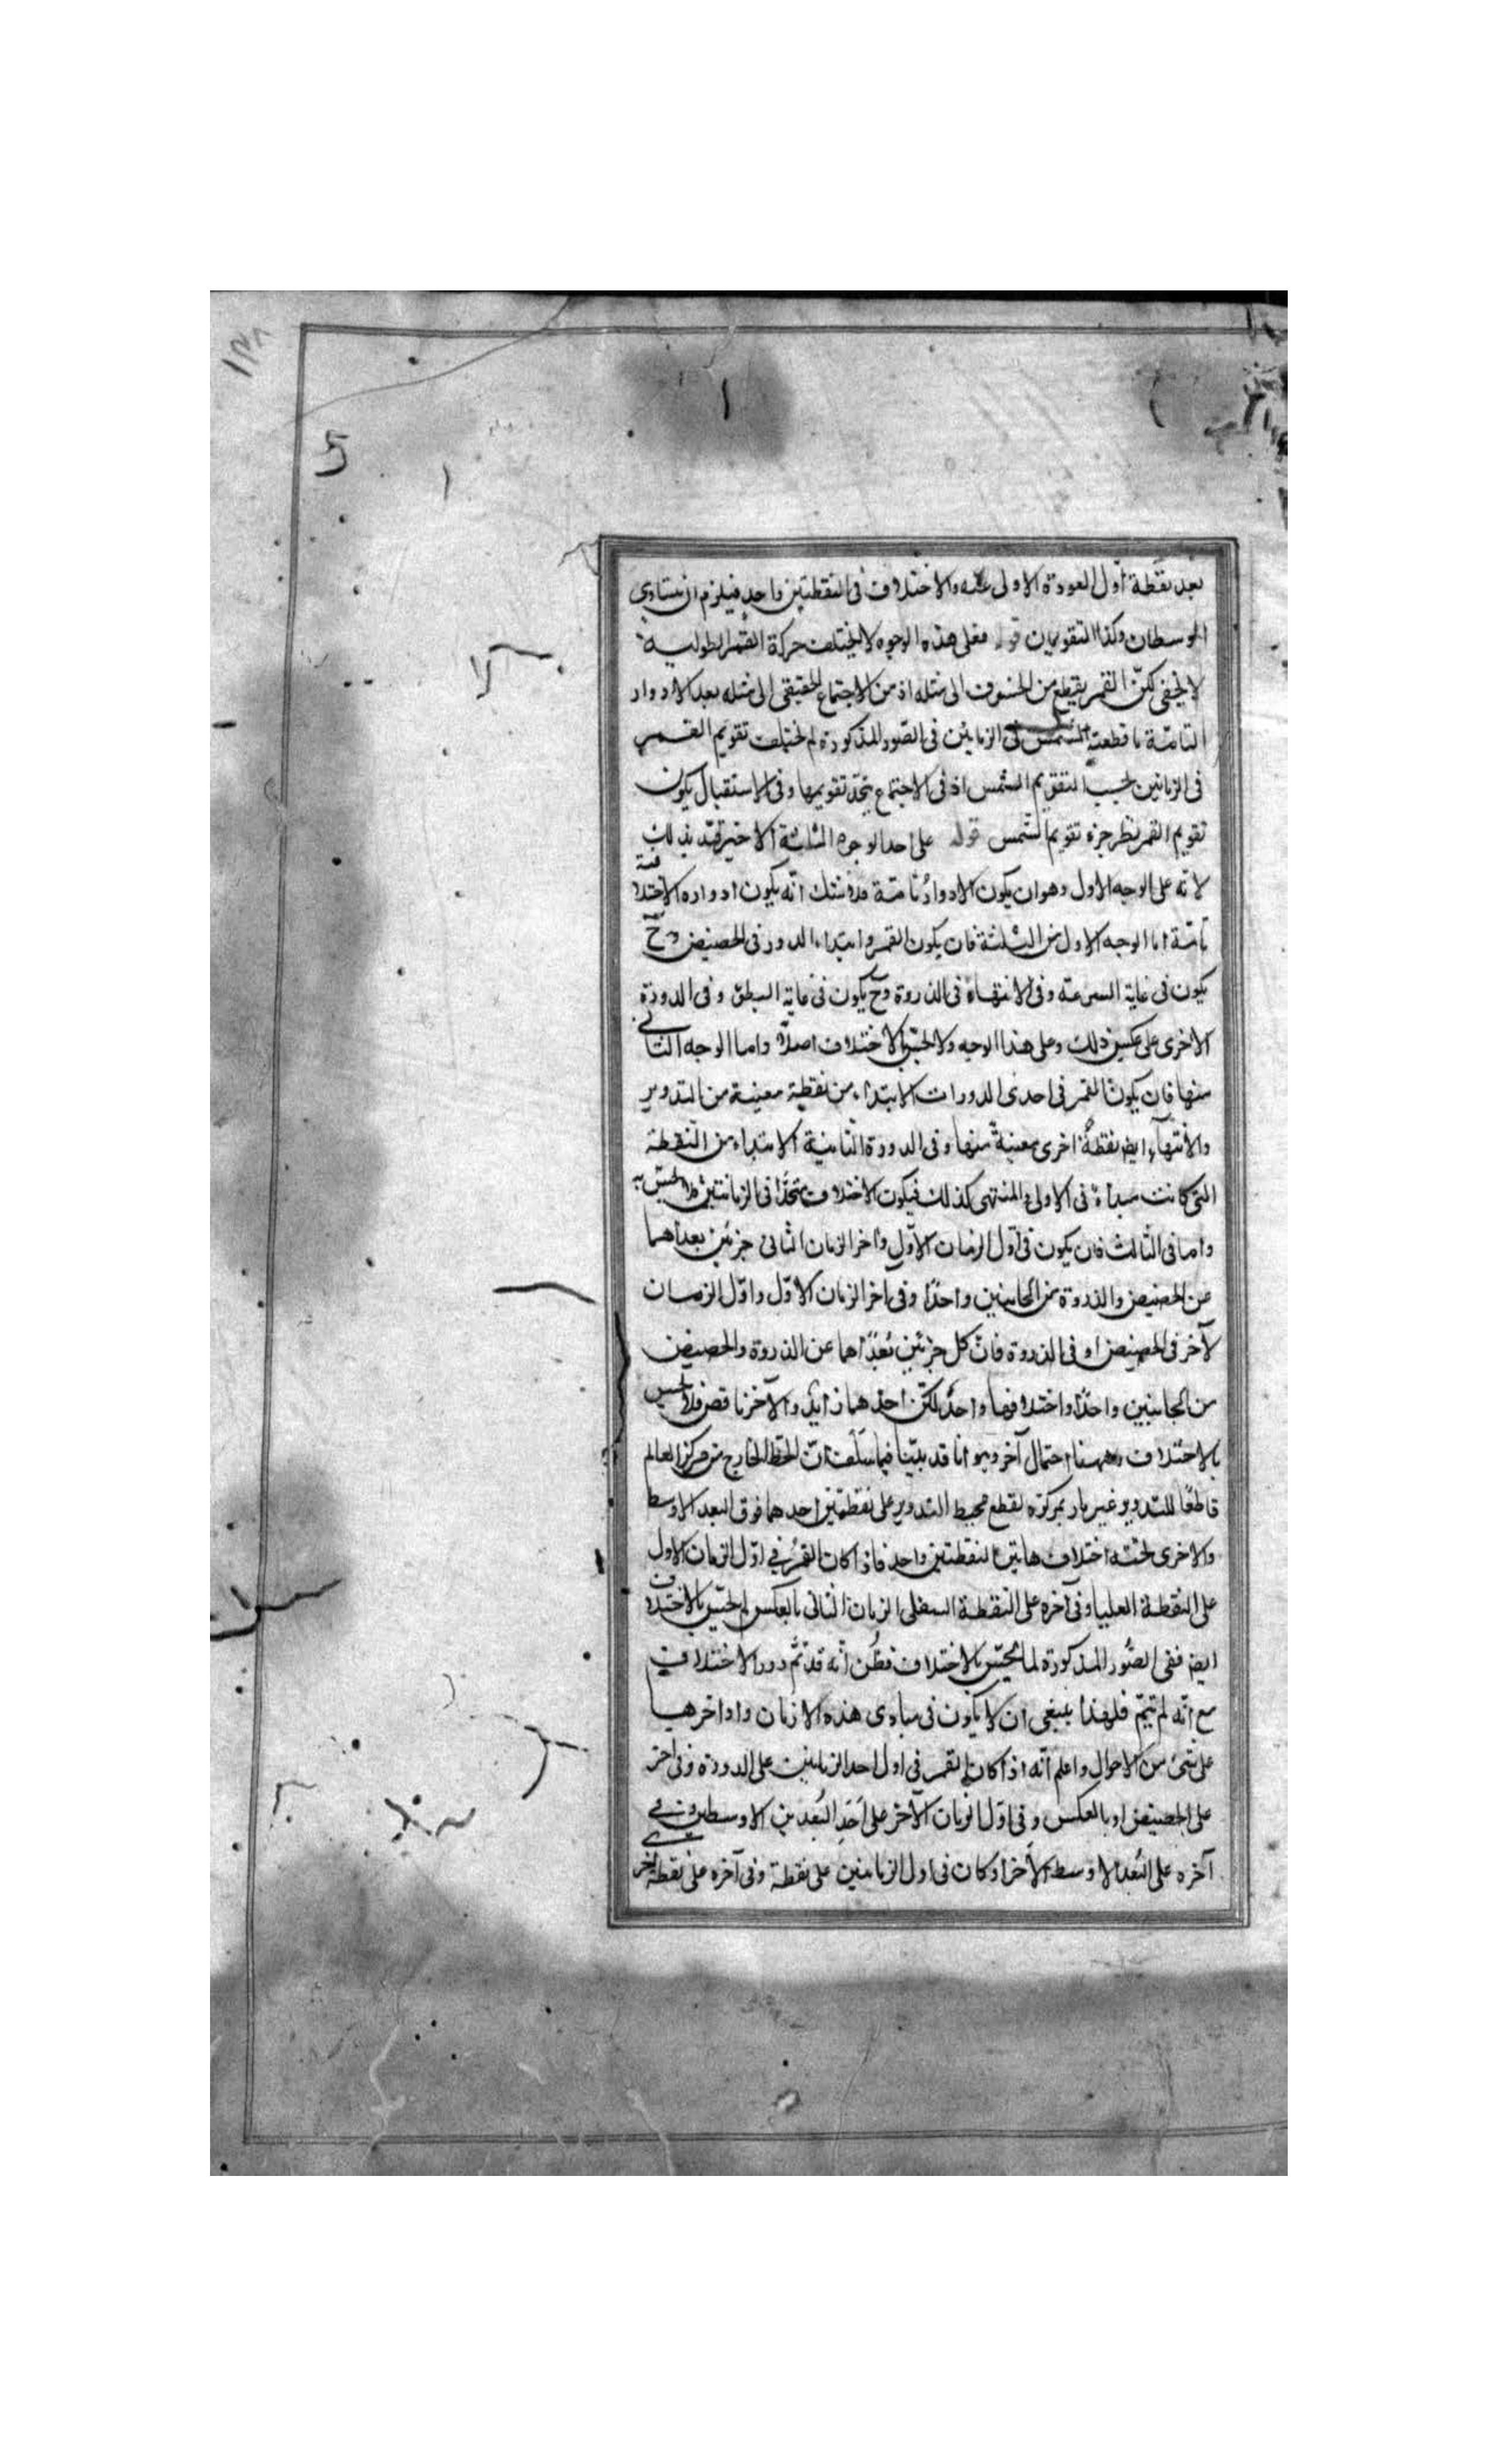 بعد نقطة أول العودة الاولى عنه والاختلاف فى النقطتين واحد فيلزم ان يتساوى
الوسطان وكذا التقويمان قوله فعلى هذه الوجوه لا يختلف حركة القمر الطولية
لا يخفى كون القمر يقطع من الخسوف الى مثله اذ من الاجتماع الحقيقى الى مثله بعد الادوار
التامة ما قطعته الشمس فى الزمانين فى الصور المذكورة لم يختلف تقويم القمر
فى الزمانين بحسب تقويم الشمس اذ فى الاجتماع يتحد تقويمها وفى الاستقبال يكون
تقويم القمر نظير جزء تقويم الشمس قوله على احد الوجوه الثلثة الاخيرة قيد بذلك
لانه على الوجه الاول وهو ان يكون الادوار تامة فلا شك انه يكون ادواره الاختلافية
تامة اما الوجه الاول من الثلثة فان يكون القمر وابتداء الدور فى الحضيض وح
يكون فى غاية السرعة وفى الانتهاء فى الذروة وح يكون فى غاية البطؤ وفى الدورة
الاخرى على عكس ذلك وعلى هذا الوجه ولا يحس الاختلاف اصلا واما الوجه الثانى
منها فان يكون القمر فى احدى الدورات الابتداء من نقطة معينة من التدوير
والانتهاء ايض نقطة اخرى معينة منها وفى الدورة الثانية الابتداء من النقطة
التى كانت مبدأ فى الاولى والمنتهى كذلك فيكون الاختلاف متحدا فى الزمانين فلا يحس به
واما فى الثالث فان يكون فى اول الزمان الاول واخر الزمان الثانى جزئين بعداهما
عن الحضيض والذروة من الجانبين واحدا وفى اخر الزمان الاول واول الزمان
الآخر فى الحضيض او فى الذروة فان كل جزئين بعداهما عن الذروة والحضيض
من الجانبين واحدا واختلافهما واحد لكن احدهما زايد والآخر ناقص فلا يحس
بالاختلاف وههنا احتمال آخر وهو انا قد بينا فيما سلف ان الخط الخارج من مركز العالم
قاطعا للتدوير غير مار بمركزه يقطع محيط التدوير على نقطتين احدهما فوق البعد الاوسط
والاخرى تحته اختلاف هاتين النقطتين واحد فاذا كان القمر فى اول الزمان الاول
على النقطة العليا وفى آخره على النقطة السفلى الزمان الثانى بالعكس لم يحس بالاختلاف
ايض ففى الصور المذكورة لما لم يحس بالاختلاف فظن انه قد تم دور الاختلاف
مع انه لم يتم فلهذا ينبغى ان لا يكون فى مبادى هذه الازمان واواخرها
على شئ من الاحوال واعلم انه اذا كان القمر فى اول احد الزمانين على الدورة وفى اخر
على الحضيض او بالعكس وفى اول الزمان الآخر على احد البعدين الاوسطين وفى
آخره على البعد الاوسط الآخر او كان فى اول الزمانين على نقطة وفى آخره على نقطة اخر